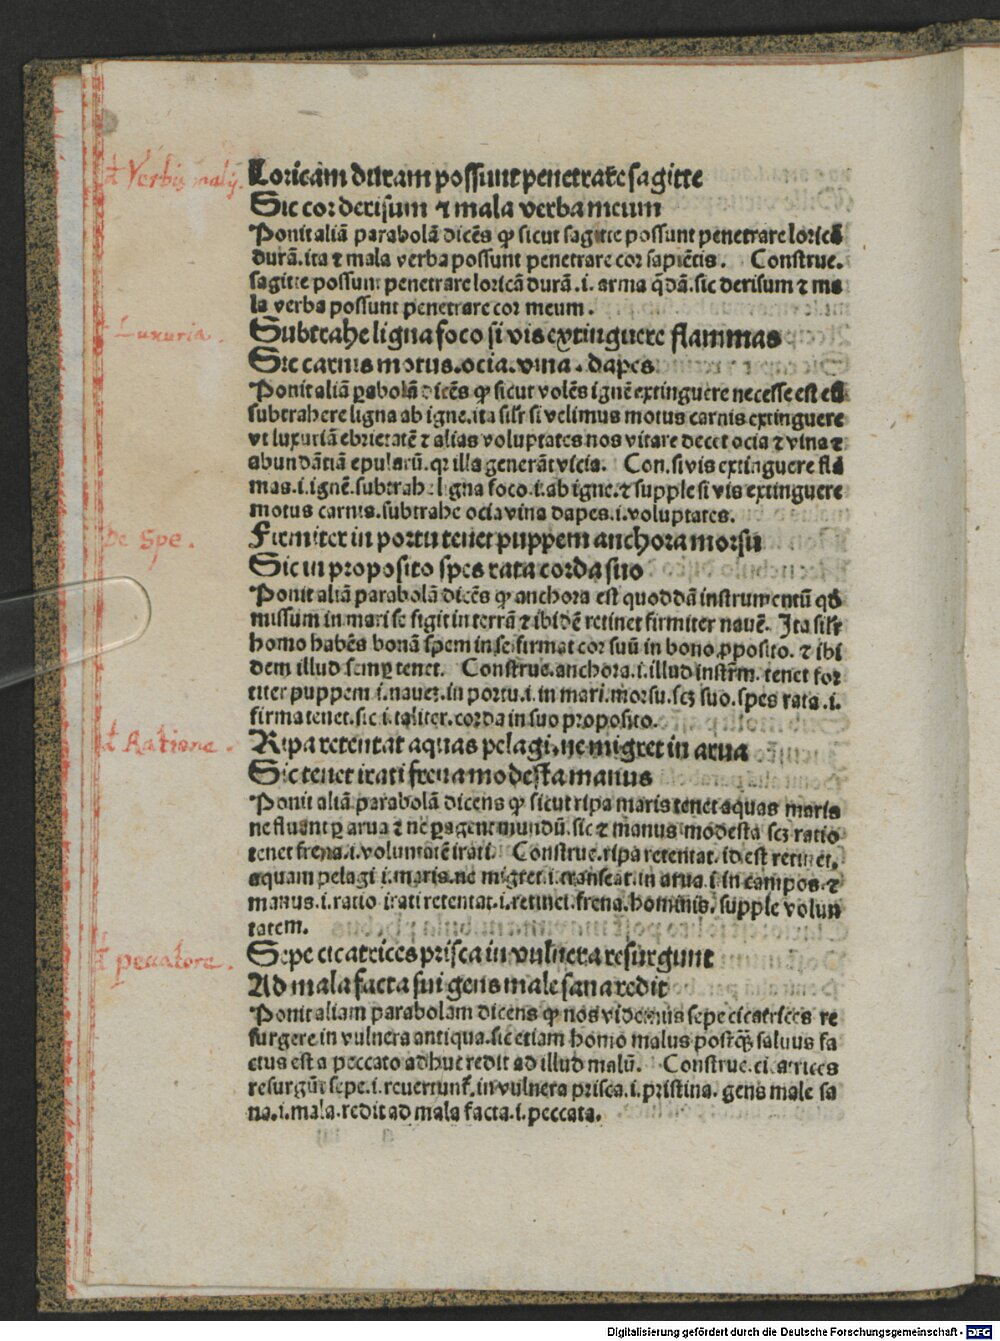 de Verbis malis.
Loricam duram possunt penetrare sagitte
Sic cor derisum ⁊ mala verba meum
Ponit aliā parabolā dicēs ꝙ sicut sagitte possunt penetrare loricā
durā.ita ⁊ mala verba possunt penetrare cor sapiētis. Construe.
sagitte possunt penetrare loricā durā.i. arma q̄dā.sic derisum ⁊ ma
la verba possunt penetrare cor meum.
Luxuria.
Subtrahe ligna foco si vis extinguere flammas
Sic carnis motus.ocia.vina.dapes
Ponit aliā ꝑabolā dicēs ꝙ sicut volēs ignē extinguere necesse est eū
subtrahere ligna ab igne.ita silr̄ si velimus motus carnis extinguere
vt luxuriā ebrietatē ⁊ alias voluptates nos vitare decet ocia ⁊ vina ⁊
abundātiā epularū.qꝛ illa generāt vicia. Con.si vis extinguere flā
mas.i.ignē.subtrahe ligna foco.i.ab igne.⁊ supple si vis extinguere
motus carnis.subtrahe ocia vina dapes.i.voluptates.
De Spe.
Firmiter in portu tenet puppem anchora morsu
Sic in proposito spes rata corda suo
Ponit aliā parabolā dicēs ꝙ anchora est quoddā instrumentū qd̄
missum in mari se figit in terrā ⁊ ibidē retinet firmiter nauē. Ita silr̄
homo habēs bonā spem in se firmat cor suū in bono ꝓposito. ⁊ ibi
dem illud semꝑ tenet. Construe.anchora.i.illud instr̄m. tenet for
titer puppem.i.naueꝫ.in portu.i.in mari.morsu.scꝫ suo.spes rata.i.
firma tenet.sic.i.taliter.corda in suo proposito.
de Ratione.
Ripa retentat aquas pelagi,ne migret in arua
Sic tenet irati frena modesta manus
Ponit aliā parabolā dicens ꝙ sicut ripa maris tenet aquas maris
ne fluant ꝑ arua ⁊ ne ꝑagent mundū.sic ⁊ manus modesta scꝫ ratio
tenet frena.i.voluntatē irati. Construe.ripa retentat.id est retinet.
aquam pelagi.i.maris.ne migret.i.transeat.in arua.i.in campos.⁊
manus.i.ratio irati retentat.i.retinet.frena.hominis.supple volun
tatem.
de peccatore.
Sepe cicatrices prisca in vulnera resurgunt
Ad mala facta sui gens male sana redit
Ponit aliam parabolam dicens ꝙ nos videmus sepe cicatrices re
surgere in vulnera antiqua.sic etiam homo malus postqꝫ saluus fa
ctus est a peccato adhuc redit ad illud malū. Construe.cicatrices
resurgūt sepe.i.reuertunt̄.in vulnera prisca.i.pristina. gens male sa
na.i.mala.redit ad mala facta.i.peccata.
Digitalisierung gefördert durch die Deutsche Forschungsgemeinschaft - DFG